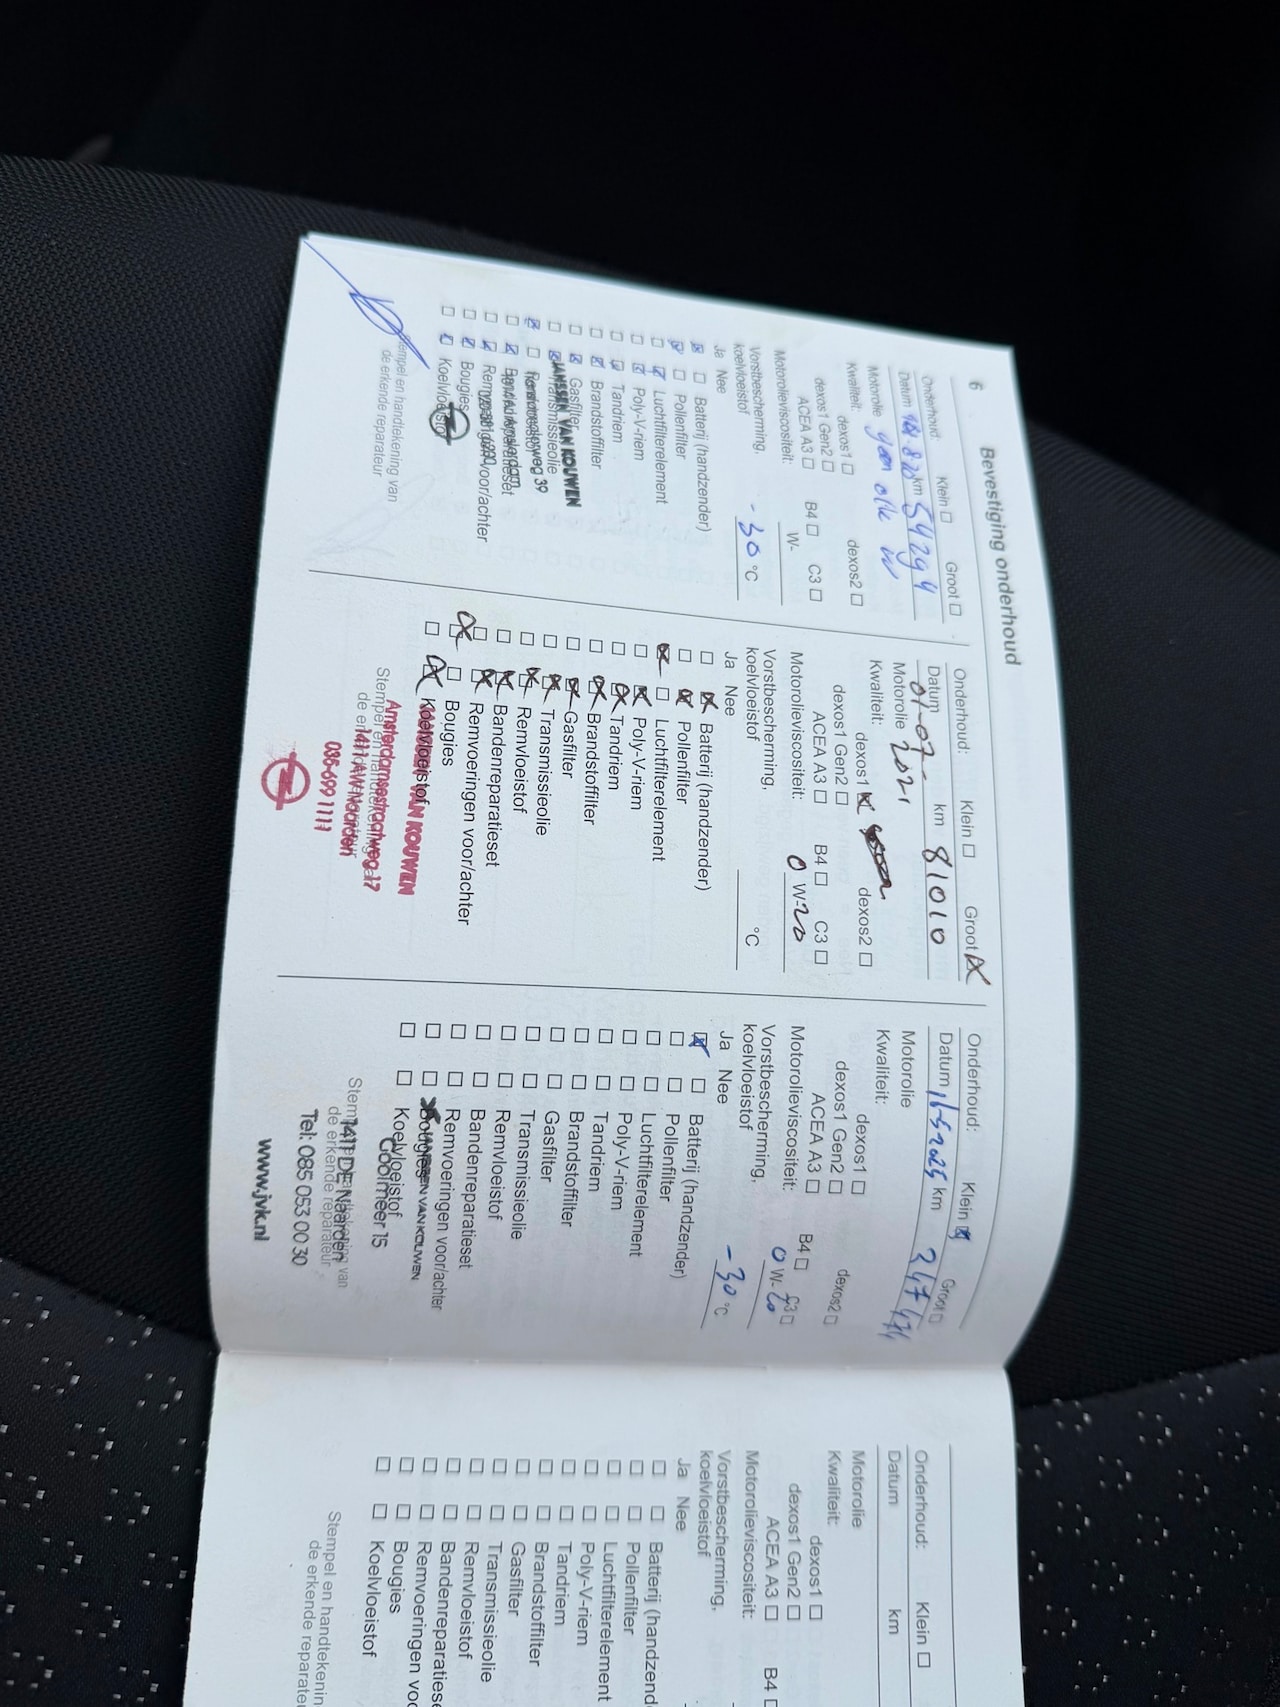 6
Bevestiging onderhoud
Onderhoud: Klein Groot
Datum km 54294
Motorolie geen olie
Kwaliteit: dexos1 dexos2
dexos1 Gen2
ACEA A3 B4 C3
Motorolieviscositeit: W-
Vorstbescherming,
koelvloeistof -30 °C
Ja Nee
Batterij (handzender)
Pollenfilter
Luchtfilterelement
Poly-V-riem
Tandriem
Brandstoffilter
Gasfilter
Transmissieolie
JANSSEN VAN KOUWEN
Remvloeistof
Bandenreparatieset
Remvoeringen voor/achter
Bougies
Koelvloeistof
Stempel en handtekening van
de erkende reparateur
Onderhoud: Klein Groot
Datum 01-07- km 81010
Motorolie 2021
Kwaliteit: dexos1 dexos2
dexos1 Gen2
ACEA A3 B4 C3
Motorolieviscositeit: 0 W-20
Vorstbescherming,
koelvloeistof °C
Ja Nee
Batterij (handzender)
Pollenfilter
Luchtfilterelement
Poly-V-riem
Tandriem
Brandstoffilter
Gasfilter
Transmissieolie
Remvloeistof
Bandenreparatieset
Remvoeringen voor/achter
Bougies
Koelvloeistof
VAN KOUWEN
Amsterdamsestraatweg 17
Stempel en handtekening van
1411 AW Naarden
085-699 1111
Onderhoud: Klein Groot
Datum 16-5-2025 km
Motorolie
Kwaliteit: dexos1 dexos2
dexos1 Gen2
ACEA A3 B4 C3
Motorolieviscositeit: 0 W-20
Vorstbescherming,
koelvloeistof -30 °C
Ja Nee
Batterij (handzender)
Pollenfilter
Luchtfilterelement
Poly-V-riem
Tandriem
Brandstoffilter
Gasfilter
Transmissieolie
Remvloeistof
Bandenreparatieset
Remvoeringen voor/achter
Bougies
JANSSEN VAN KOUWEN
Koelvloeistof
Gooimeer 15
1411 DE Naarden
Stempel en handtekening van
de erkende reparateur
Tel: 085 053 00 30
www.jvk.nl
Onderhoud: Klein
Datum km
Motorolie
Kwaliteit: dexos1
dexos1 Gen2
ACEA A3 B4
Motorolieviscositeit:
Vorstbescherming,
koelvloeistof
Ja Nee
Batterij (handzend
Pollenfilter
Luchtfilterelement
Poly-V-riem
Tandriem
Brandstoffilter
Gasfilter
Transmissieolie
Remvloeistof
Bandenreparatiese
Remvoeringen voo
Bougies
Koelvloeistof
Stempel en handtekenin
de erkende reparate